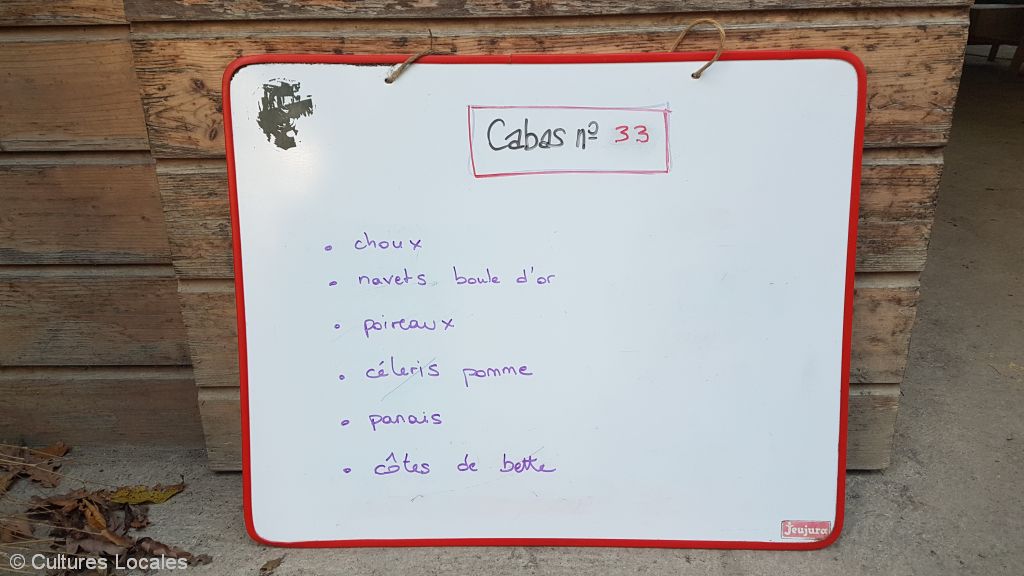 Cabas nº 33
• choux
• navets boule d'or
• poireaux
• céleris pomme
• panais
• côtes de bette
Jeujura
© Cultures Locales